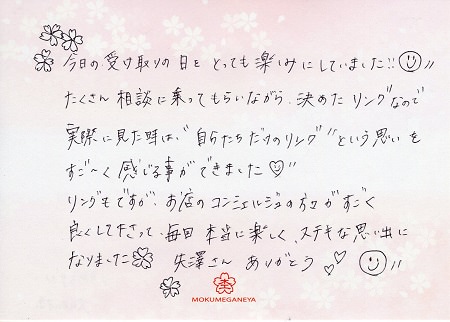 今日の受け取りの日をとっても楽しみにしていました!!
たくさん相談に乗ってもらいながら、決めたリングなので
実際に見た時は、"自分たちだけのリング"という思いを
すご〜く感じる事ができました
リングもですが、お店のコンシェルジュの方々がすごく
良くして下さって、毎回本当に楽しく、ステキな思い出に
なりました 矢澤さん ありがとう
MOKUMEGANEYA